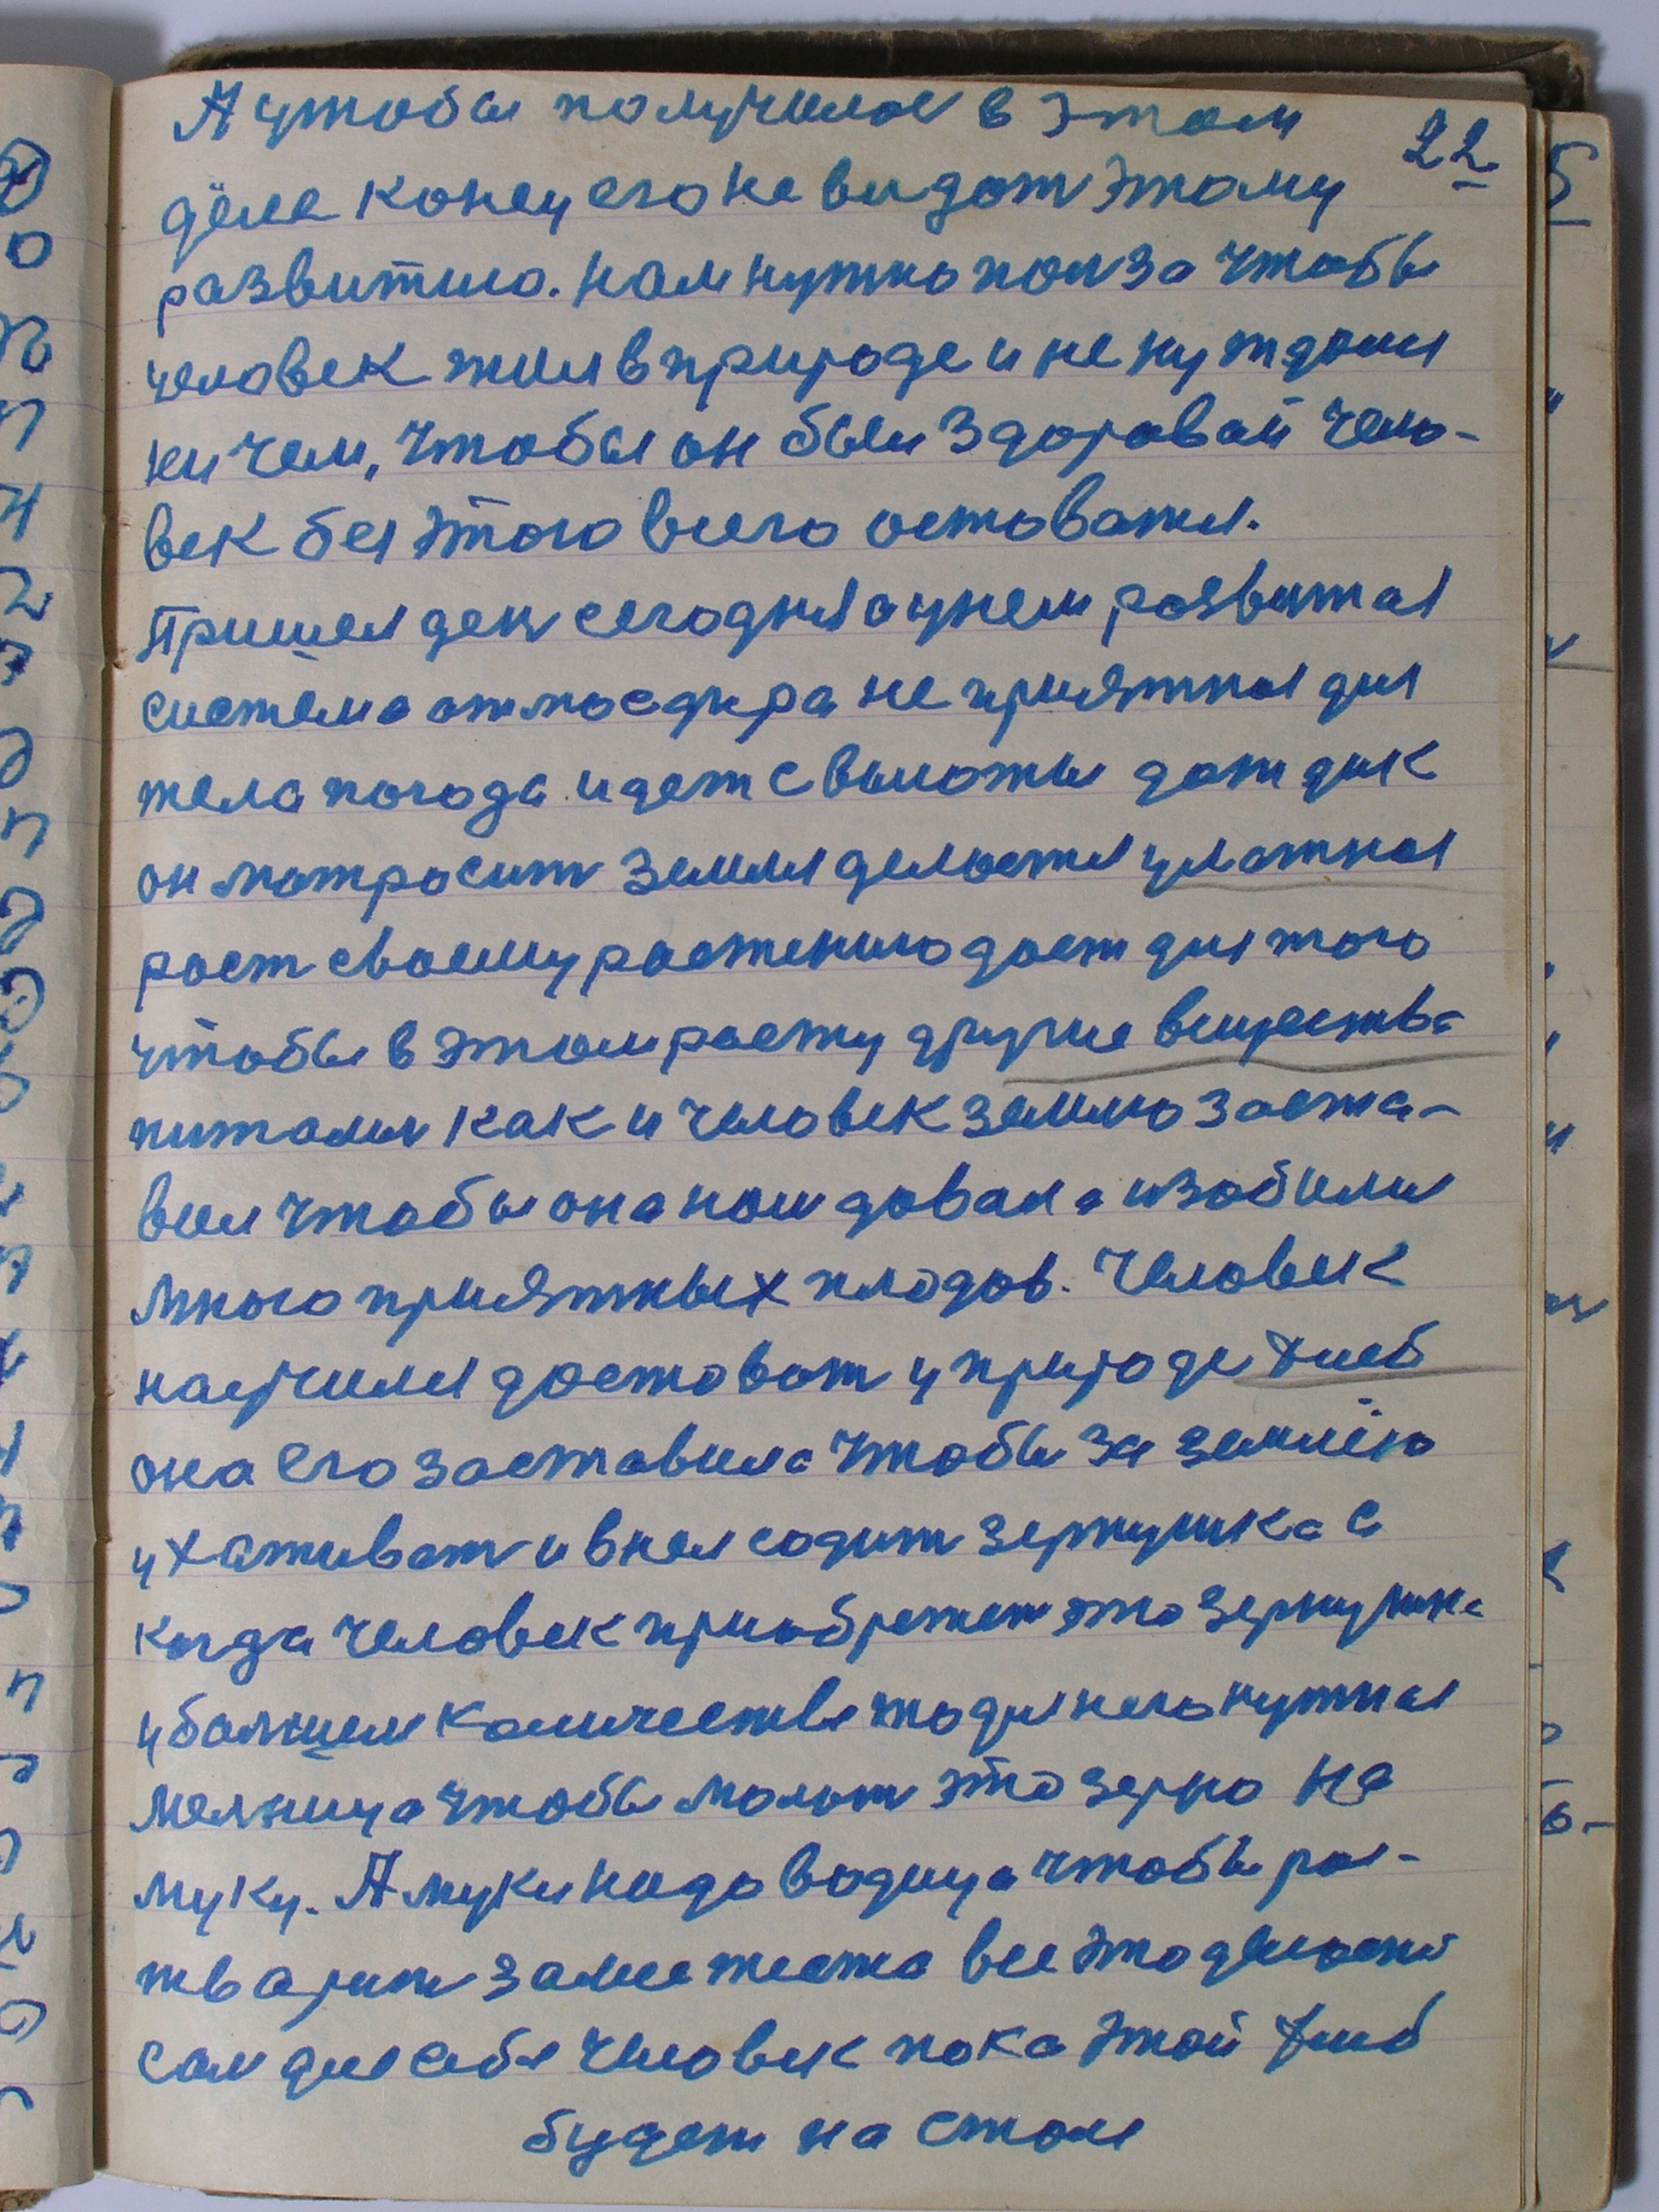 А чтобы получилос в этом
22
деле конец его не видат этому
развитию. Нам нужно полза чтобы
человек жил в природе и не нуждался
ни чем, чтобы он был здоровай чело-
век без этого всего остоватся.
Пришел ден сегодня а унем развитая
система атмосфира не приятная для
тела погода идет с высоты дождик
он мотросит земля делается уплотная
рост своему растению дает для того
чтобы в этом росту другие вещества
питалис как и человек землю заста-
вил чтобы она нам довала изобилия
много приятных плодов. Человек
научился достоват у природе хлеб
она его заставила чтобы за землёю
ухаживат и в нея содит зернушка а
когда человек приобретет это зернушка
у болшем количестве то для него нужная
мелница чтобы молот это зерно на
муку. А муки надо водица чтобы рас-
тварит замес теста все это делает
сам для себя человек пока этой хлеб
будет на столе